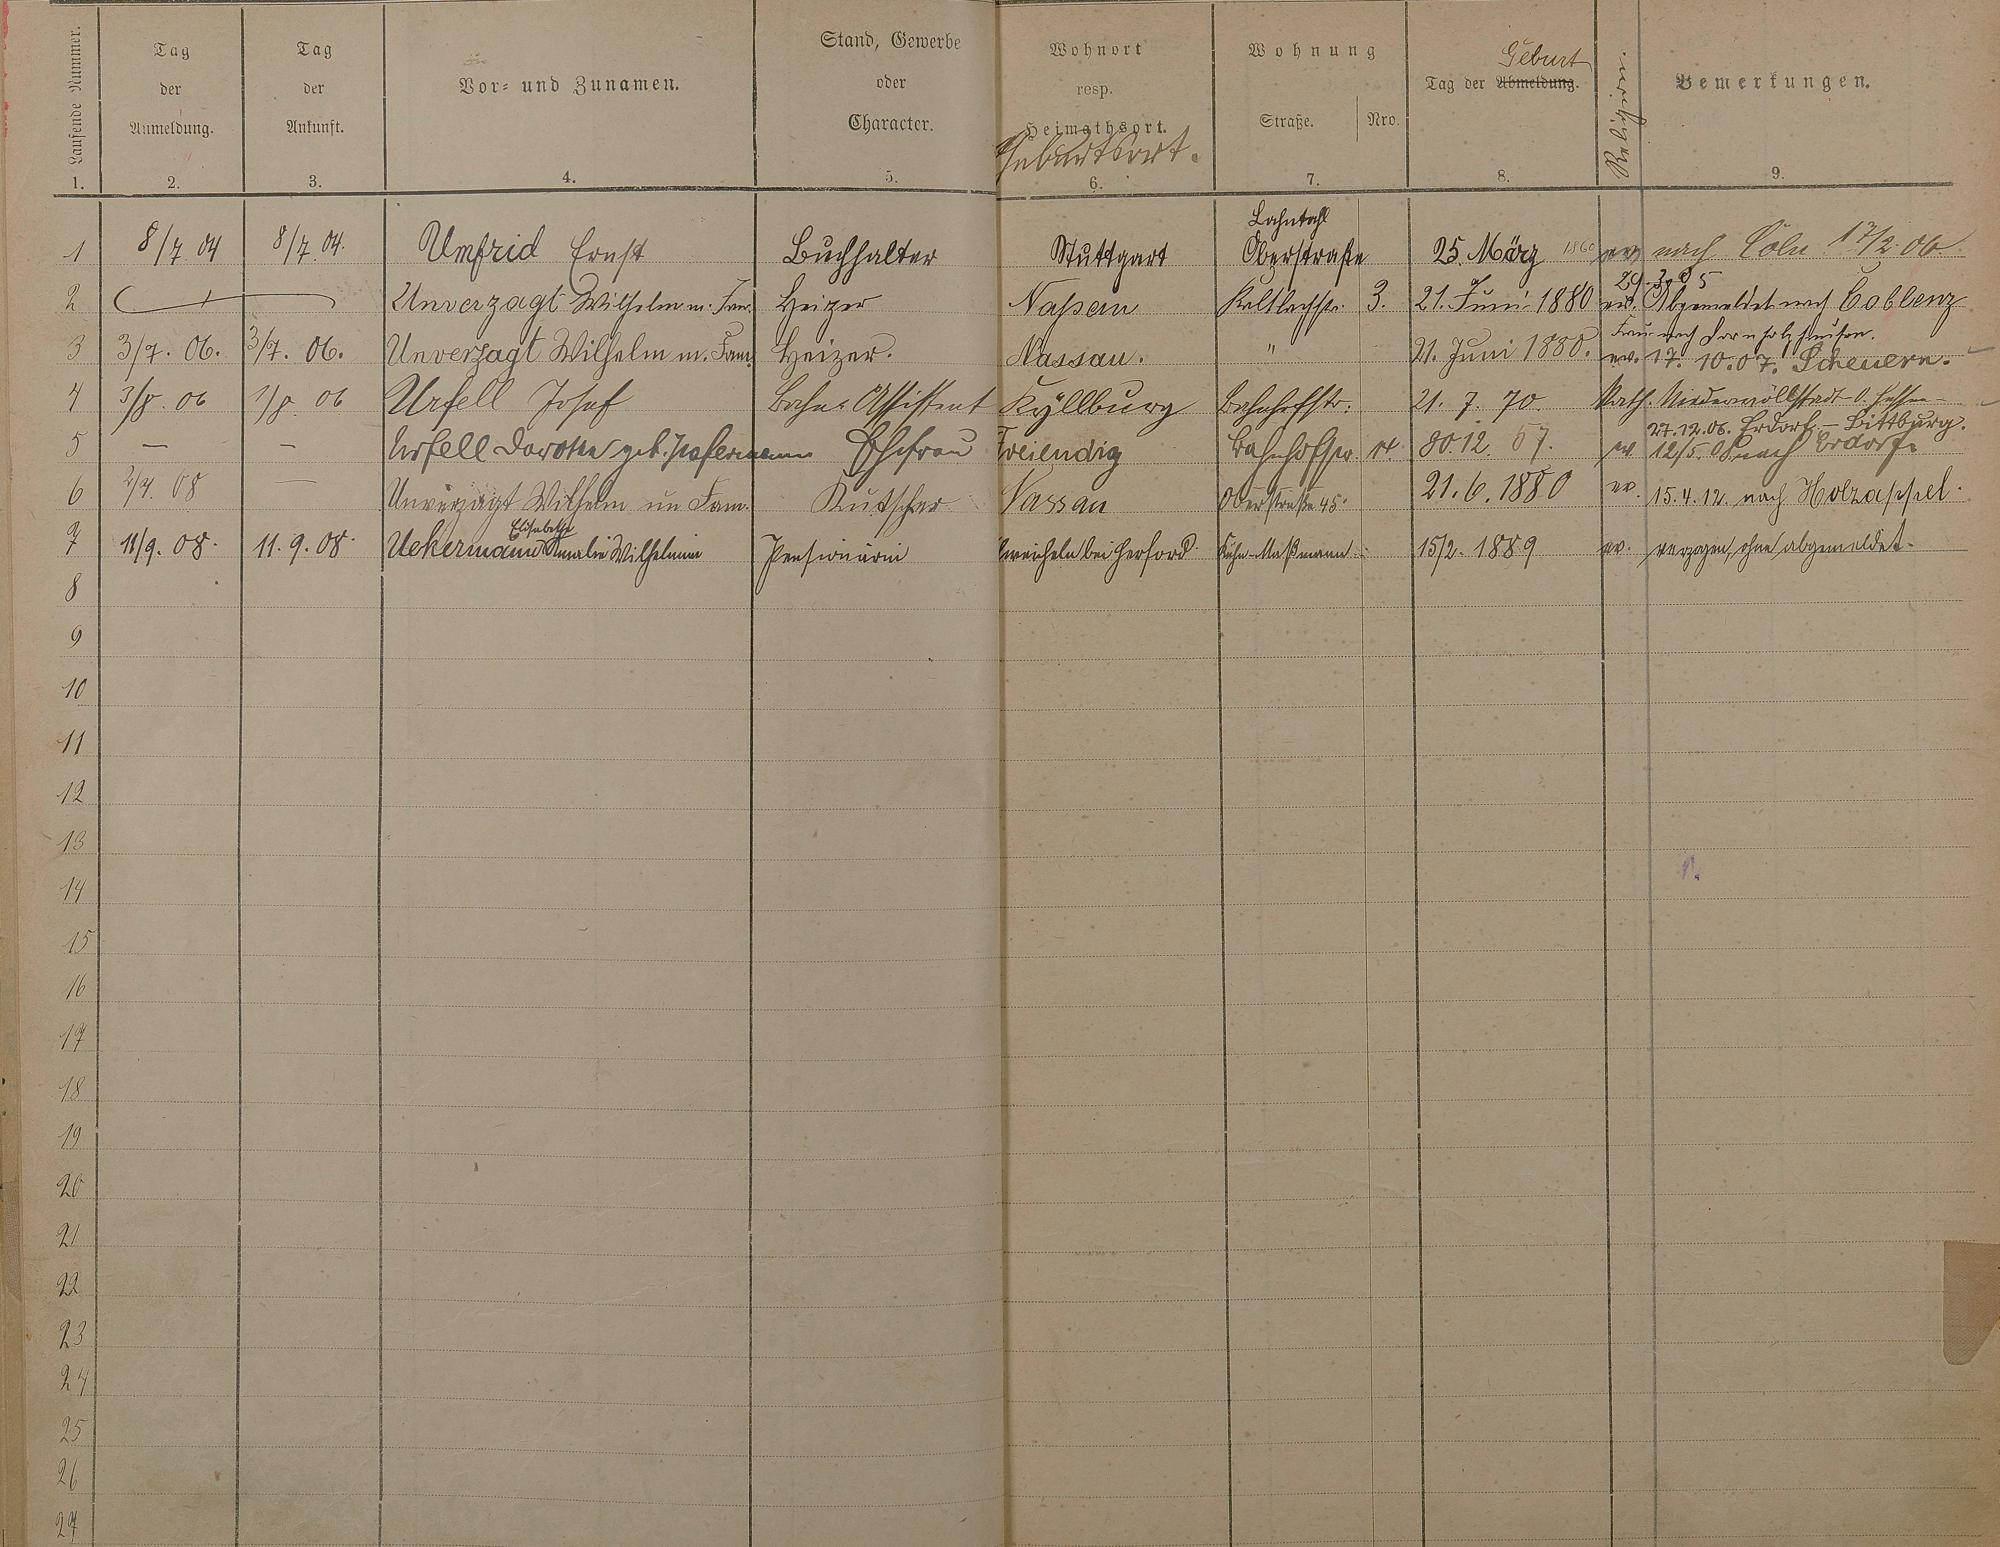 Laufende Nummer. Tag Tag Vor- und Zunamen. Stand, Gewerbe Wohnort Wohnung Geburt Religion Bemerkungen.
der der oder resp. Tag der Abmeldung.
Anmeldung. Ankunft. Character. Heimathsort. Straße. Nro.
Geburtsort.
1. 2. 3. 4. 5. 6. 7. 8. 9.
1 8/7 04 8/7. 04. Umfrid Ernst Buchhalter Stuttgart Oberstraße 25. März 1860 ev nach Cöln 17/2. 06.
29.3.05
2 Unverzagt Wilhelm m. Fam. Heizer Nassau Kaltbachstr. 3. 21. Juni 1880 ev. Abgemeldet nach Coblenz
Frau nach Dornholzhausen.
3 3/7. 06. 3/7. 06. Unverzagt Wilhelm m. Fam. Heizer. Nassau. " 21. Juni 1880. ev. 17. 10. 07. Scheuern.
4 3/8. 06 1/8. 06 Urfell Josef Bahn-Assistent Kyllburg Bahnhofstr: 21. 7. 70. Kath.
27.12.06. Erdorf - Bittburg.
5 — — Urfell geb. Ehefrau Bahnhofstr 12. 67. ev. 12/5. nach Erdorf
6 2/4. 08 — Unverzagt Wilhelm un Fam. Kutscher Nassau Oberstraße 45. 21. 6. 1880 ev. 15. 4. 12. nach Holzappel.
Elisabethe
7 11/9. 08. 11. 9. 08. Uekermann Amalie Wilhelmine Pensionärin bei Herford 15/2. 1889 ev. verzogen, ohne abgemeldet.
8
9
10
11
12
13
14
15
16
17
18
19
20
21
22
23
24
25
26
27